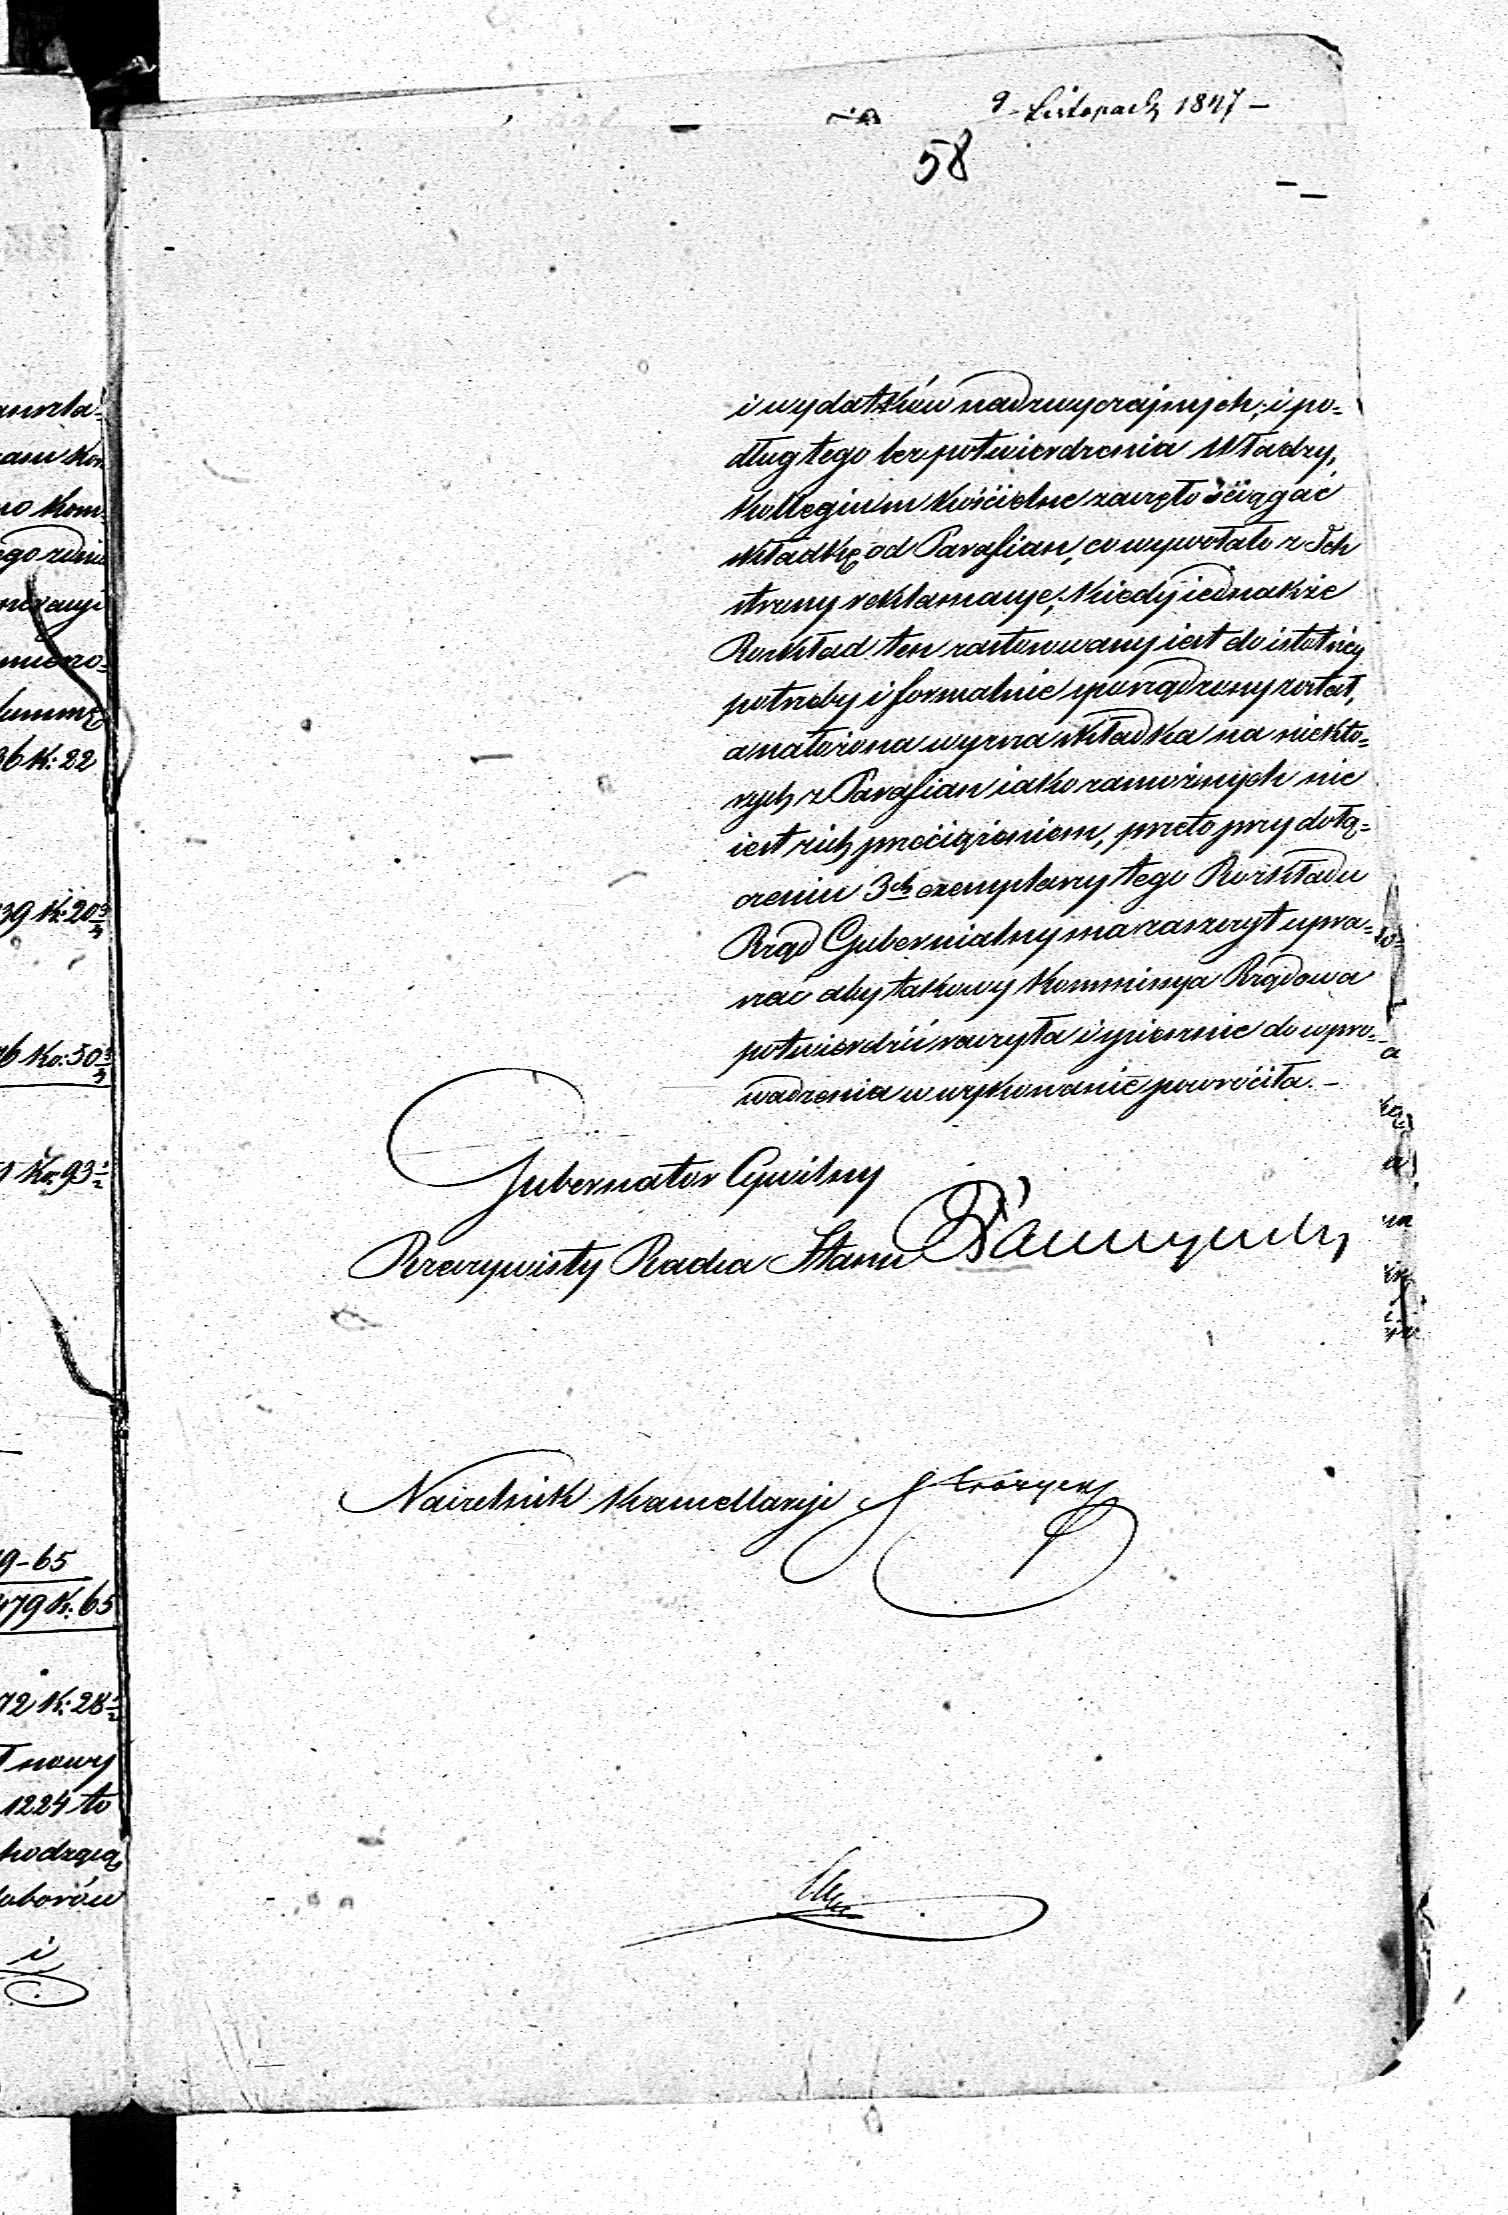 9 Listopada 1847 –
58
i wydatków nadzwyczajnych; i po=
dług tego bez potwierdzenia Władzy,
Kollegium Kościelne zaczęło ściągać
składkę od Parafian, co wywołało z Ich
strony reklamacye, kiedy iednakże
Rozkład ten zastosowany iest do istotnéy
potrzeby i formalnie sporządzony został,
a nałożona wyzsza składka na niektó=
rych z Parafian iako zamożnych nie
iest zich przeciążeniem, przeto przy dołą=
czeniu 3ch exemplarzy tego Rozkładu
Rząd Gubernialny ma zaszczyt upra=
szać aby takowy Kommissya Rządowa
potwierdzić raczyła i spiesznie do wpro=
wadzenia w wykonanie powróciła. –
Gubernator Cywilny
Rzeczywisty Radca Stanu
Naczelnik Kancellaryi
36 K: 22
39 K: 20 3/4
Ko: 50 3/4
Ko: 93 1/2
9-65
479 K. 65
72 K: 28 1/2
nowy
1224 to
hodzącą
oborów
i